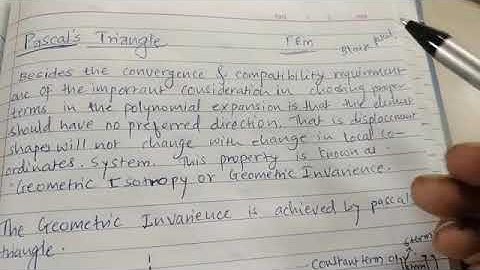 Pascal's Triangle
FEM
Besides the convergence & compatibility requirement
one of the important consideration in choosing proper
terms in the polynomial expansion is that the element
should have no preferred direction. That is displacement
shapes will not change with change in local co-
ordinates. System. This property is known as
Geometric Isotropy or Geometric Invarience.
The Geometric Invarience is achieved by pascal
triangle.
constant term